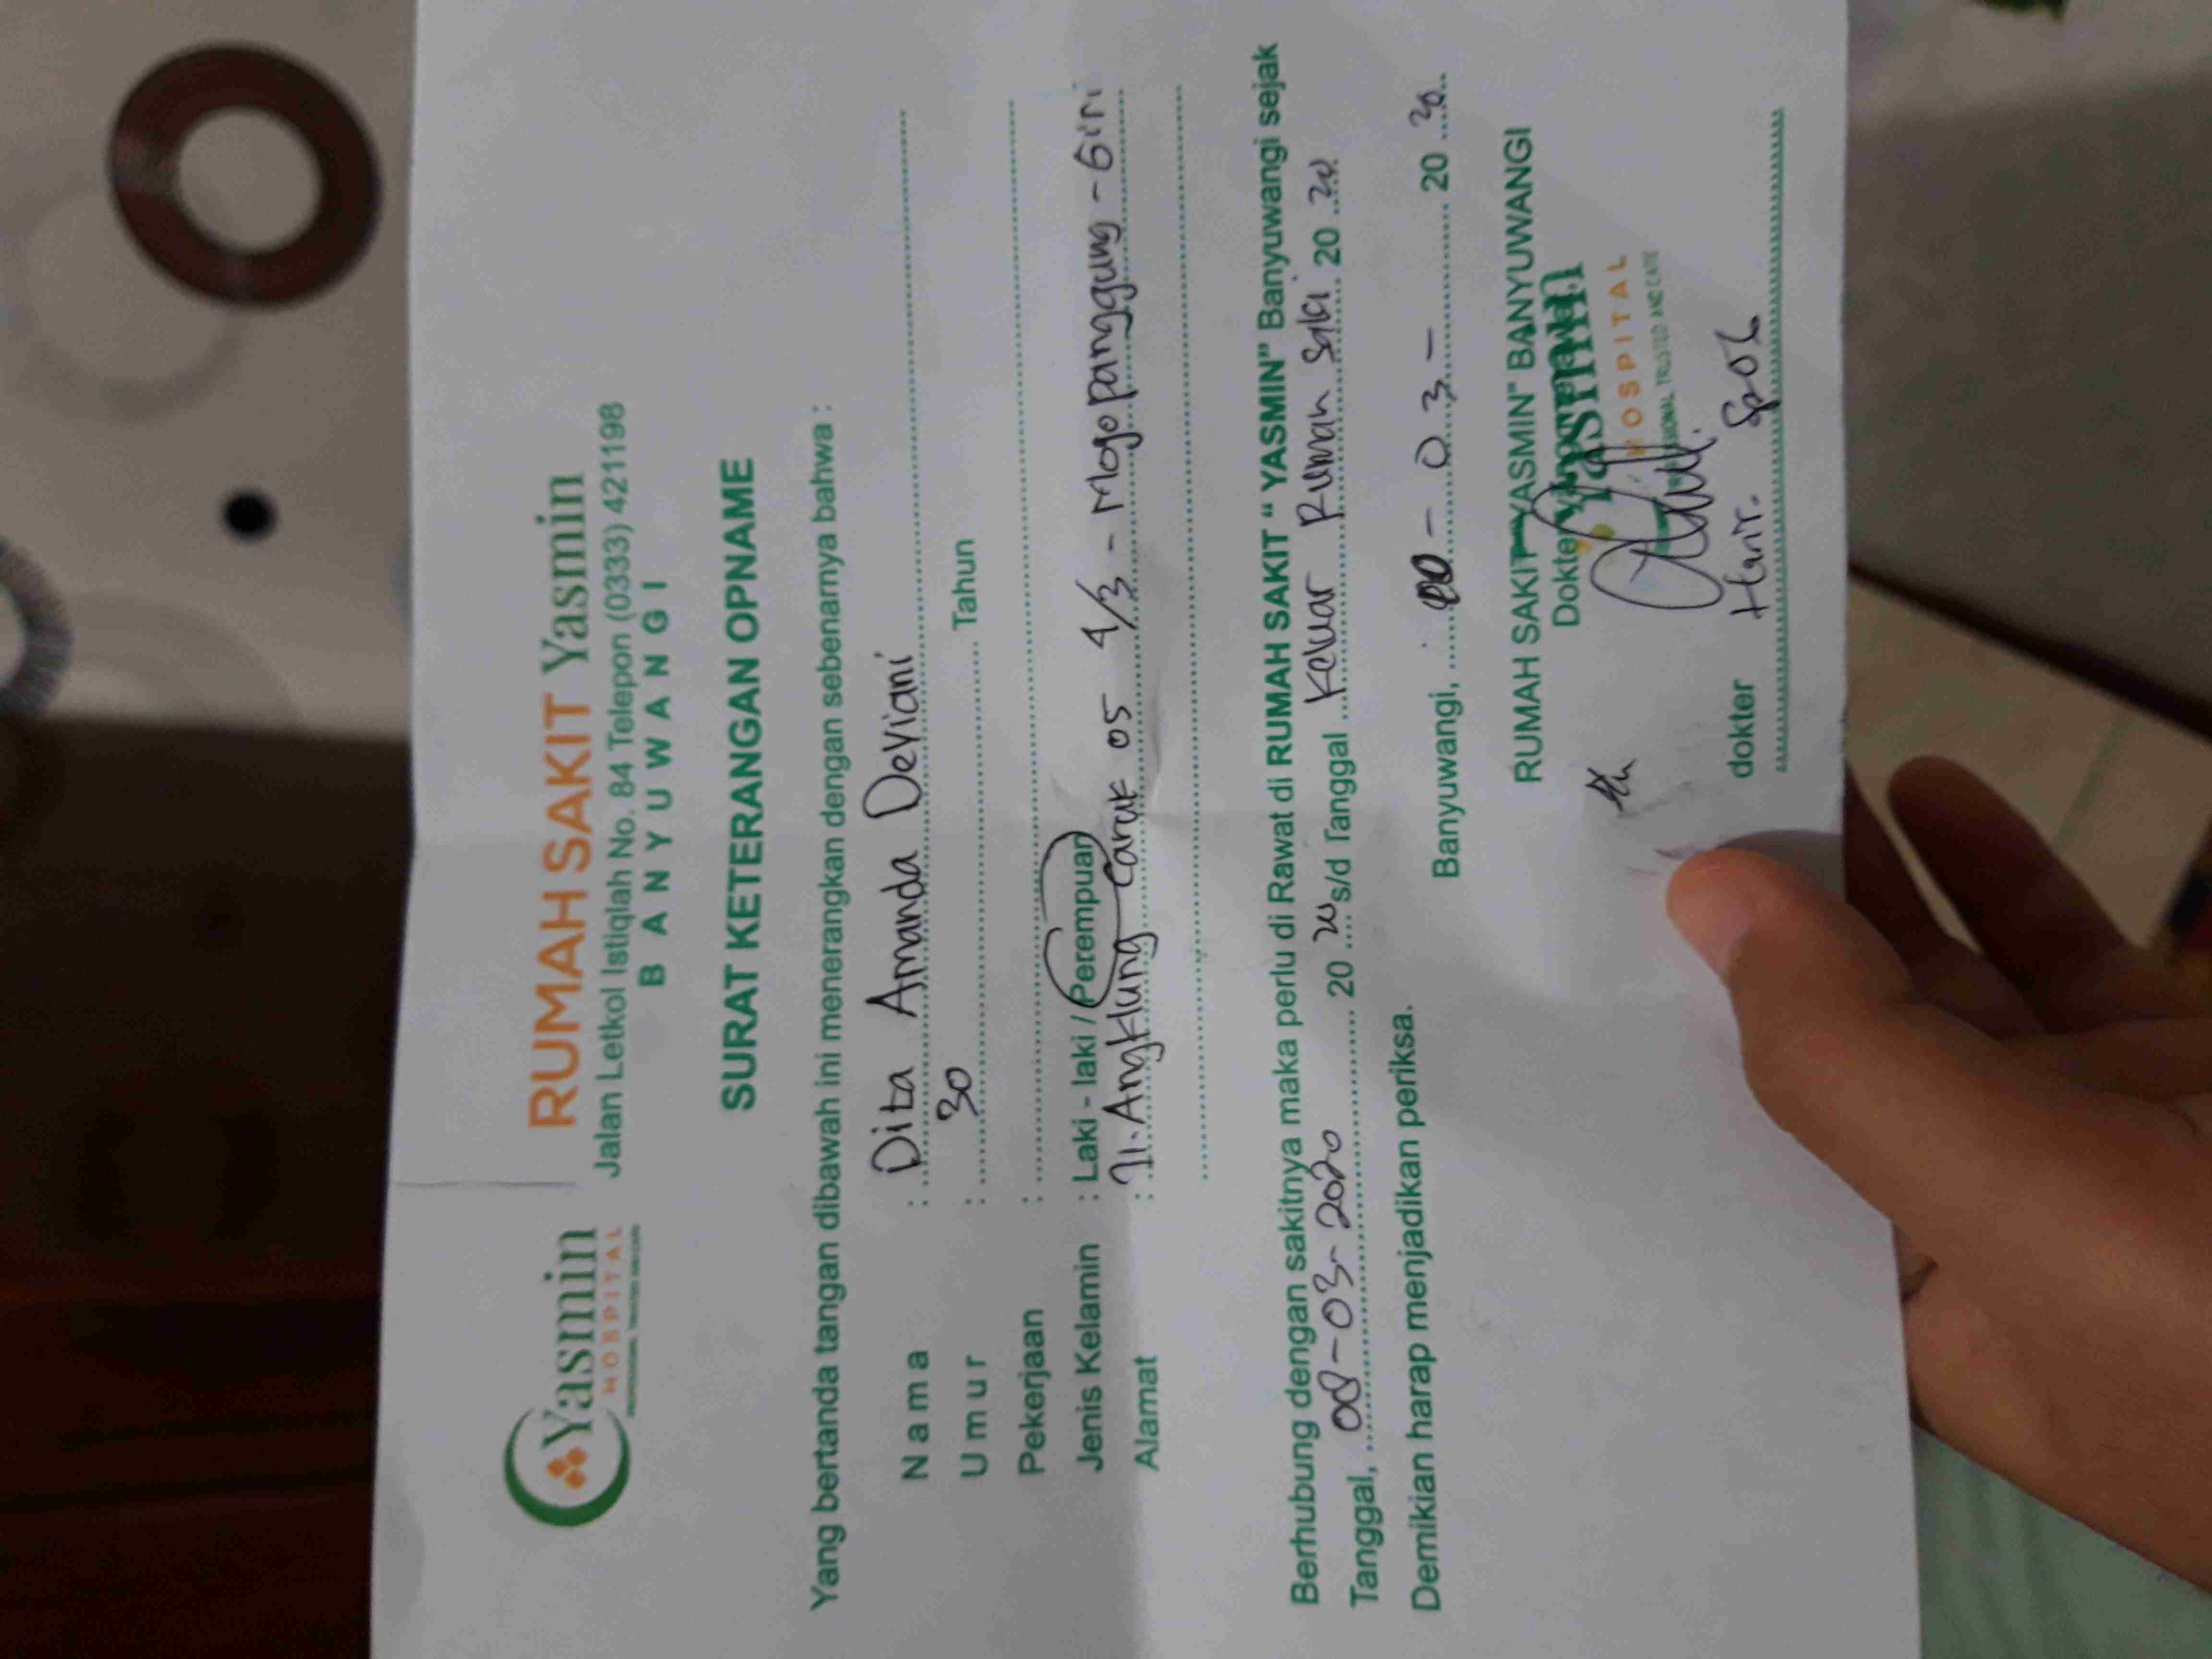 Yasmin
HOSPITAL
PROFESSIONAL TRUSTED AND CARE
RUMAH SAKIT Yasmin
Jalan Letkol Istiqlah No. 84 Telepon (0333) 421198
BANYUWANGI
SURAT KETERANGAN OPNAME
Yang bertanda tangan dibawah ini menerangkan dengan sebenarnya bahwa :
Nama : Dita Amanda Deviani
Umur : 30 Tahun
Pekerjaan :
Jenis Kelamin : Laki - laki / Perempuan
Alamat : Jl. Angklung Caruk 05 4/3 - Mojopanggung - Giri
Berhubung dengan sakitnya maka perlu di Rawat di RUMAH SAKIT “ YASMIN” Banyuwangi sejak
Tanggal, 08-03-2020 20 20 s/d Tanggal Keluar Rumah Saki 20 20
Demikian harap menjadikan periksa.
Banyuwangi, - 03 - 20 20
RUMAH SAKIT "YASMIN" BANYUWANGI
Dokter yang merawat,
Yasmin
HOSPITAL
PROFESSIONAL TRUSTED AND CARE
dokter SpOG